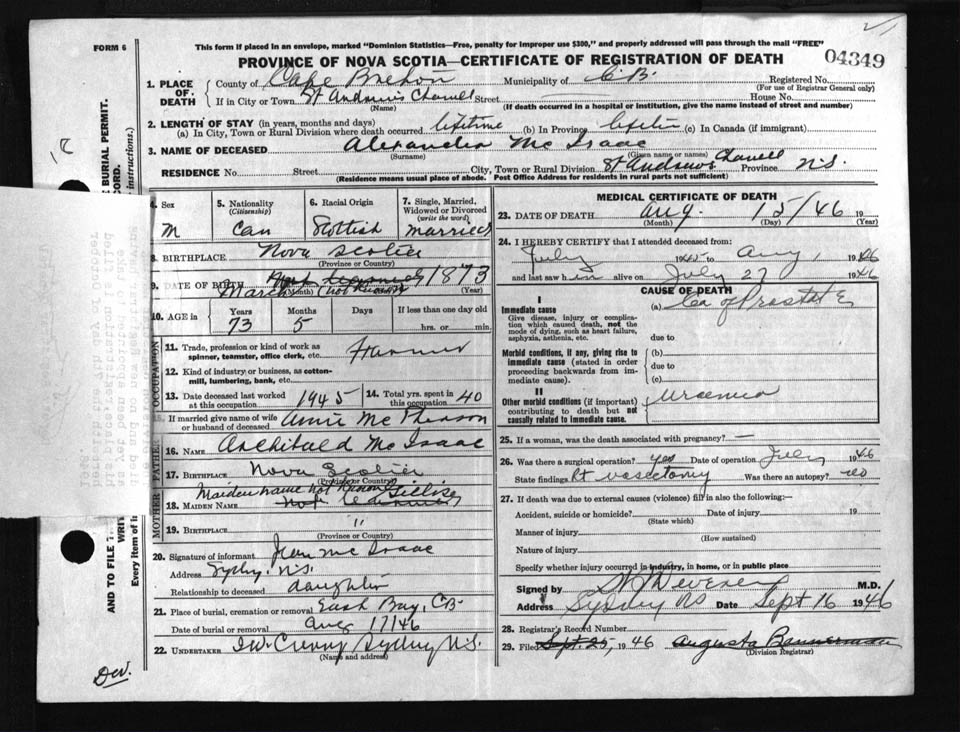 FORM 6
This form if placed in an envelope, marked "Dominion Statistics—Free, penalty for improper use $300," and properly addressed will pass through the mail "FREE"
PROVINCE OF NOVA SCOTIA—CERTIFICATE OF REGISTRATION OF DEATH
04349
1. PLACE OF DEATH County of Cape Breton Municipality of C.B. Registered No.
(For use of Registrar General only)
If in City or Town St Andrews Channel Street House No.
(Name) (If death occurred in a hospital or institution, give the name instead of street and number)
2. LENGTH OF STAY (in years, months and days)
(a) In City, Town or Rural Division where death occurred lifetime (b) In Province (c) In Canada (if immigrant)
3. NAME OF DECEASED Alexander Mc Isaac
(Surname) (Given name or names)
RESIDENCE No. Street City, Town or Rural Division St Andrews Channel Province N.S.
(Residence means usual place of abode. Post Office Address for residents in rural parts not sufficient)
4. Sex M
5. Nationality (Citizenship) Can
6. Racial Origin Scottish
7. Single, Married, Widowed or Divorced (write the word) married
8. BIRTHPLACE Nova Scotia
(Province or Country)
9. DATE OF BIRTH March 1873
(Month) (Year)
10. AGE in Years 73 Months 5 Days If less than one day old hrs. or min.
OCCUPATION
11. Trade, profession or kind of work as spinner, teamster, office clerk, etc. Farmer
12. Kind of industry or business, as cotton-mill, lumbering, bank, etc.
13. Date deceased last worked at this occupation 1945 14. Total yrs. spent in this occupation 40
15. If married give name of wife or husband of deceased Annie McPherson
FATHER
16. NAME Archibald Mc Isaac
17. BIRTHPLACE Nova Scotia
(Province or Country)
MOTHER
Maiden name not known Gillis
18. MAIDEN NAME
19. BIRTHPLACE "
(Province or Country)
20. Signature of informant Jean Mc Isaac
Address Sydney, N.S.
Relationship to deceased daughter
21. Place of burial, cremation or removal East Bay, C.B.
Date of burial or removal Aug 17/46
22. UNDERTAKER Sydney N.S.
(Name and address)
MEDICAL CERTIFICATE OF DEATH
23. DATE OF DEATH Aug. 15/46 19
(Month) (Day) (Year)
24. I HEREBY CERTIFY that I attended deceased from:
July 1945 to Aug, 1946
and last saw him alive on July 27 1946
CAUSE OF DEATH
I
Immediate cause
Give disease, injury or complication which caused death, not the mode of dying, such as heart failure, asphyxia, asthenia, etc.
(a) Ca of Prostate
due to
Morbid conditions, if any, giving rise to immediate cause (stated in order proceeding backwards from immediate cause).
(b)
due to
(c)
II
Other morbid conditions (if important) contributing to death but not causally related to immediate cause.
Uraemia
25. If a woman, was the death associated with pregnancy? —
26. Was there a surgical operation? yes Date of operation July 1946
State findings vasectomy Was there an autopsy? no
27. If death was due to external causes (violence) fill in also the following:—
Accident, suicide or homicide? Date of injury 19
(State which)
Manner of injury
(How sustained)
Nature of injury
Specify whether injury occurred in industry, in home, or in public place
Signed by M.D.
Address Sydney NS Date Sept 16 1946
28. Registrar's Record Number
29. Filed Sept. 25, 1946 Augusta Bannerman
(Division Registrar)
Dev.